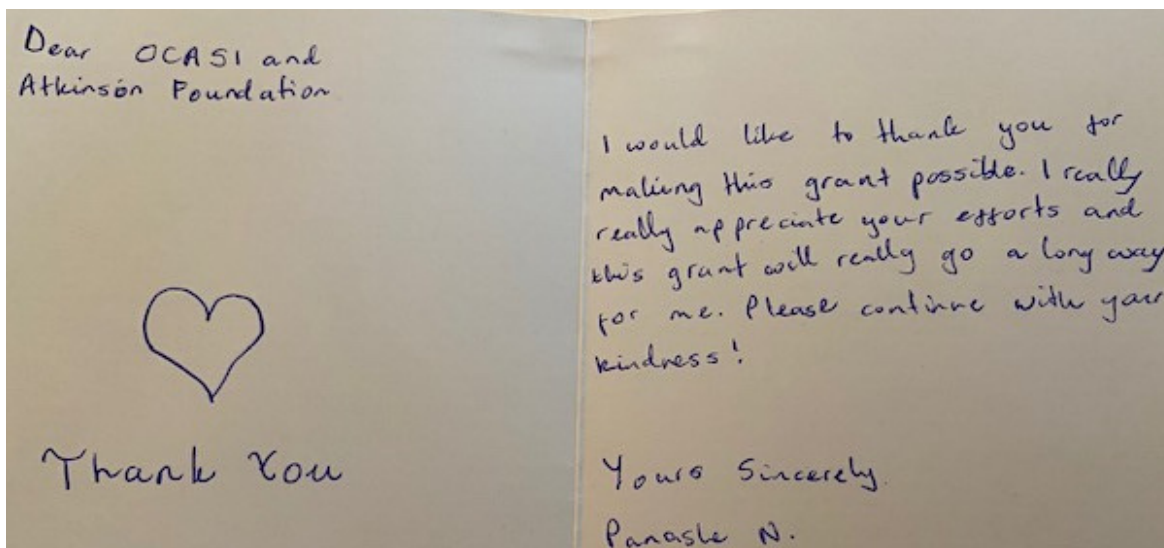 Dear OCASI and
Atkinson Foundation
Thank You
I would like to thank you for
making this grant possible. I really
really appreciate your efforts and
this grant will really go a long way
for me. Please continue with your
kindness!
Yours Sincerely.
Panashe N.